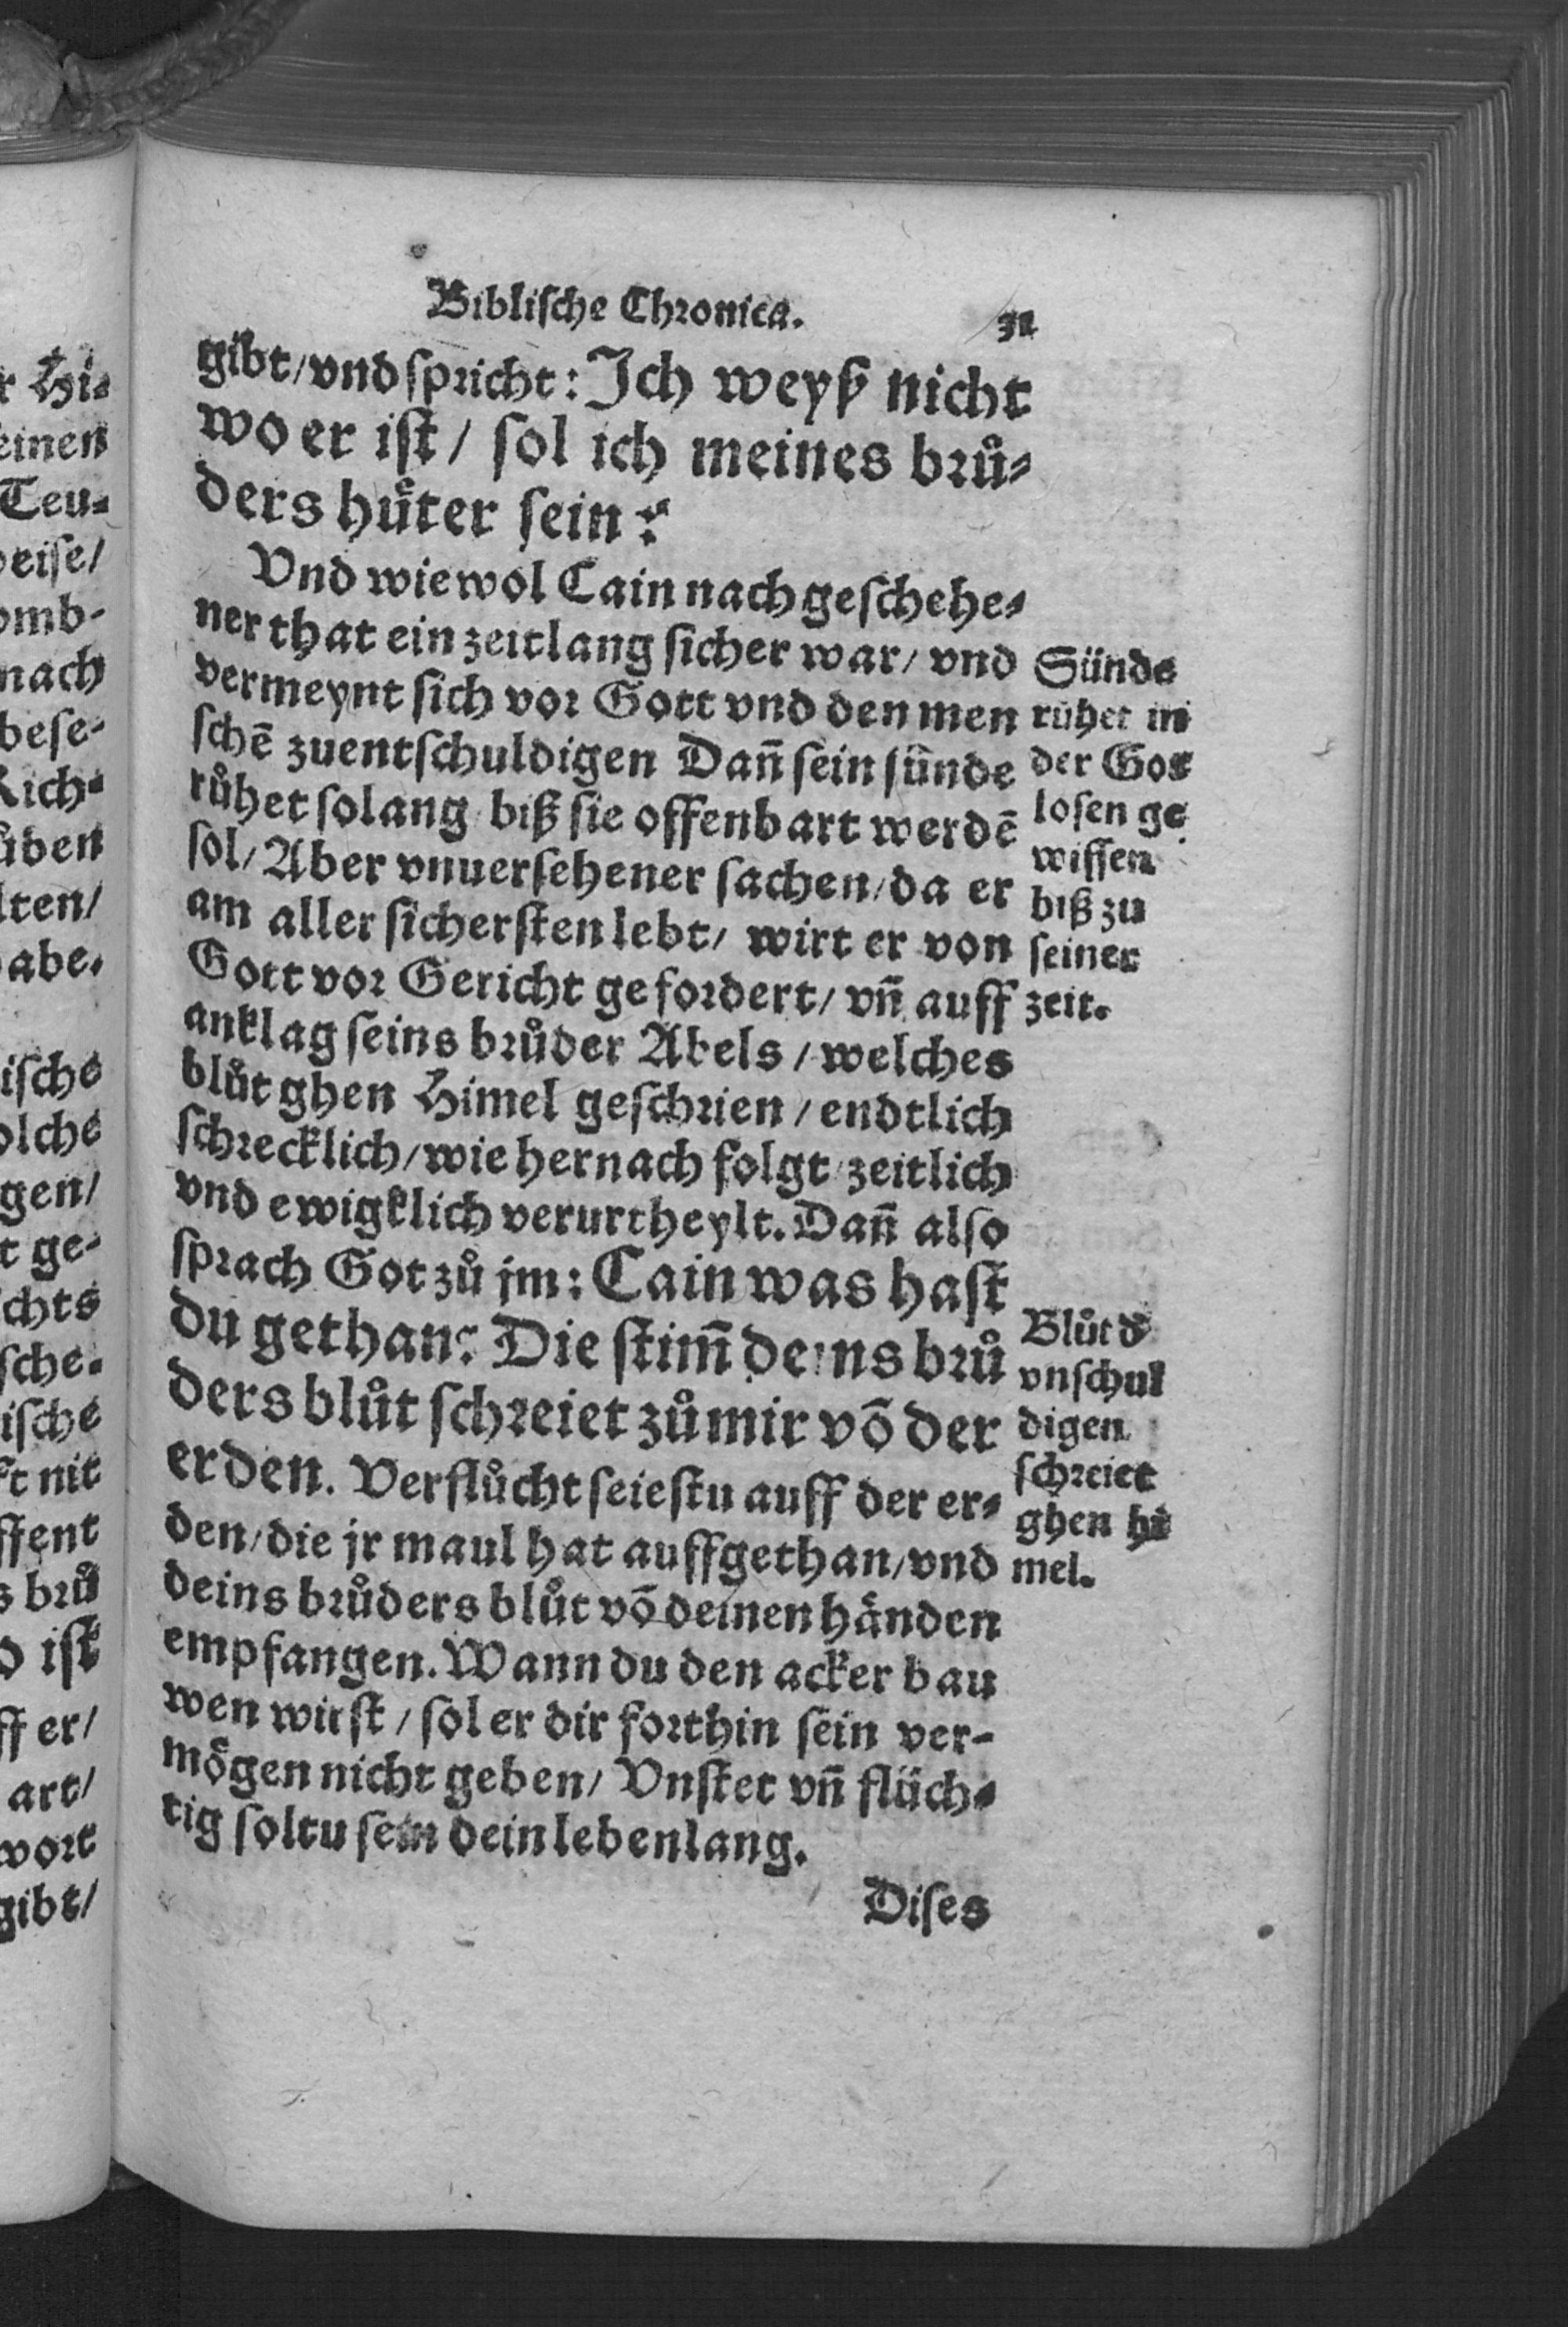 Biblische Chronica.
gibt/vnd spricht: Ich weyß nicht
wo er ist / sol ich meines brů-
ders hüter sein?
Vnd wiewol Cain nach geschehe-
ner that ein zeitlang sicher war/ vnd
vermeynt sich vor Gott vnd den men
schẽ zuentschuldigen Dañ sein sünde
růhet solang biß sie offenbart werdẽ
sol/ Aber vnuersehener sachen/da er
am aller sichersten lebt/ wirt er von
Gott vor Gericht gefordert/ vñ auff
anklag seins brůder Abels / welches
blůt ghen Himel geschrien / endtlich
schrecklich/wie hernach folgt/zeitlich
vnd ewigklich verurtheylt. Dañ also
sprach Got zů jm: Cain was hast
du gethan? Die stim̃ deins brů
ders blůt schreiet zů mir võ der
erden. Verflůcht seiestu auff der er-
den/die jr maul hat auffgethan/vnd
deins brůders blůt võ deinen händen
empfangen. Wann du den acker bau
wen wirst / sol er dir forthin sein ver-
mögen nicht geben/ Vnstet vñ flüch-
tig soltu sein dein lebenlang.
Dises
Sünde
růhet in
der Got
losen ge
wissen
biß zu
seiner
zeit.
Blůt d
vnschul
digen
schreiet
ghen hi
mel.